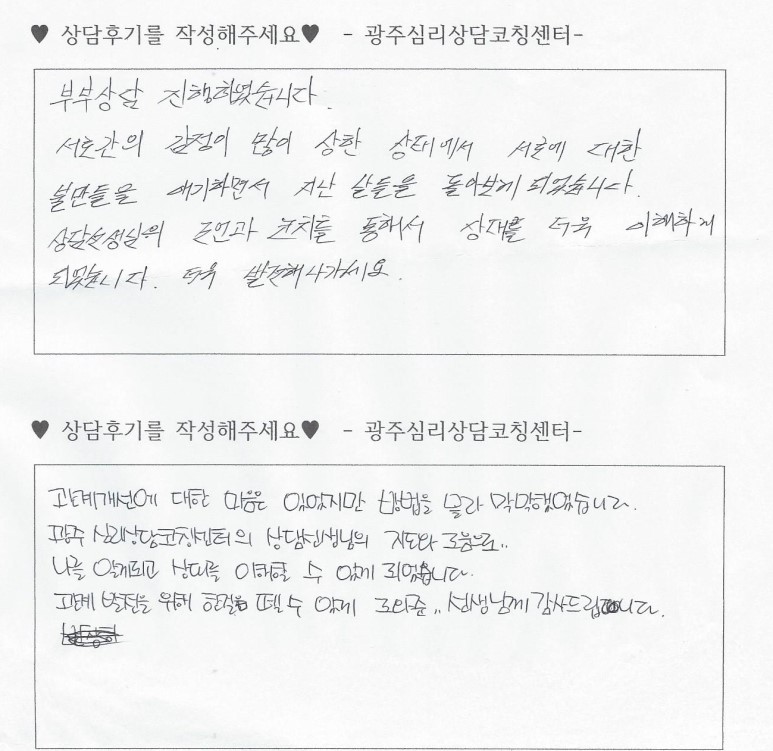 ♥ 상담후기를 작성해주세요♥ - 광주심리상담코칭센터-
부부상담 진행하였습니다.
서로간의 감정이 많이 상한 상태에서 서로에 대한
불만들을 얘기하면서 지난 날들을 돌아보게 되었습니다.
상담선생님의 조언과 코치를 통해서 상대를 더욱 이해하게
되었습니다. 더욱 발전해나가세요.
♥ 상담후기를 작성해주세요♥ - 광주심리상담코칭센터-
관계개선에 대한 마음은 있었지만 방법을 몰라 막막했었습니다.
광주 심리상담코칭센터의 상담선생님의 지도와 도움으로..
나를 알게되고 상대를 이해할 수 있게 되었습니다.
관계 발전을 위해 한걸음 뗄 수 있게 도와준.. 선생님께 감사드립니다.